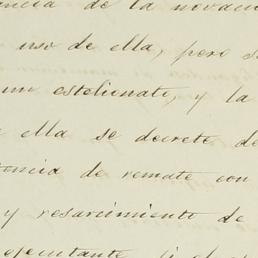 ancia de la novaci
uso de ella, pero s
un estelionato, y la
ella se decrete de
tencia de remate con
y resarcimiento de
ejecutante si el